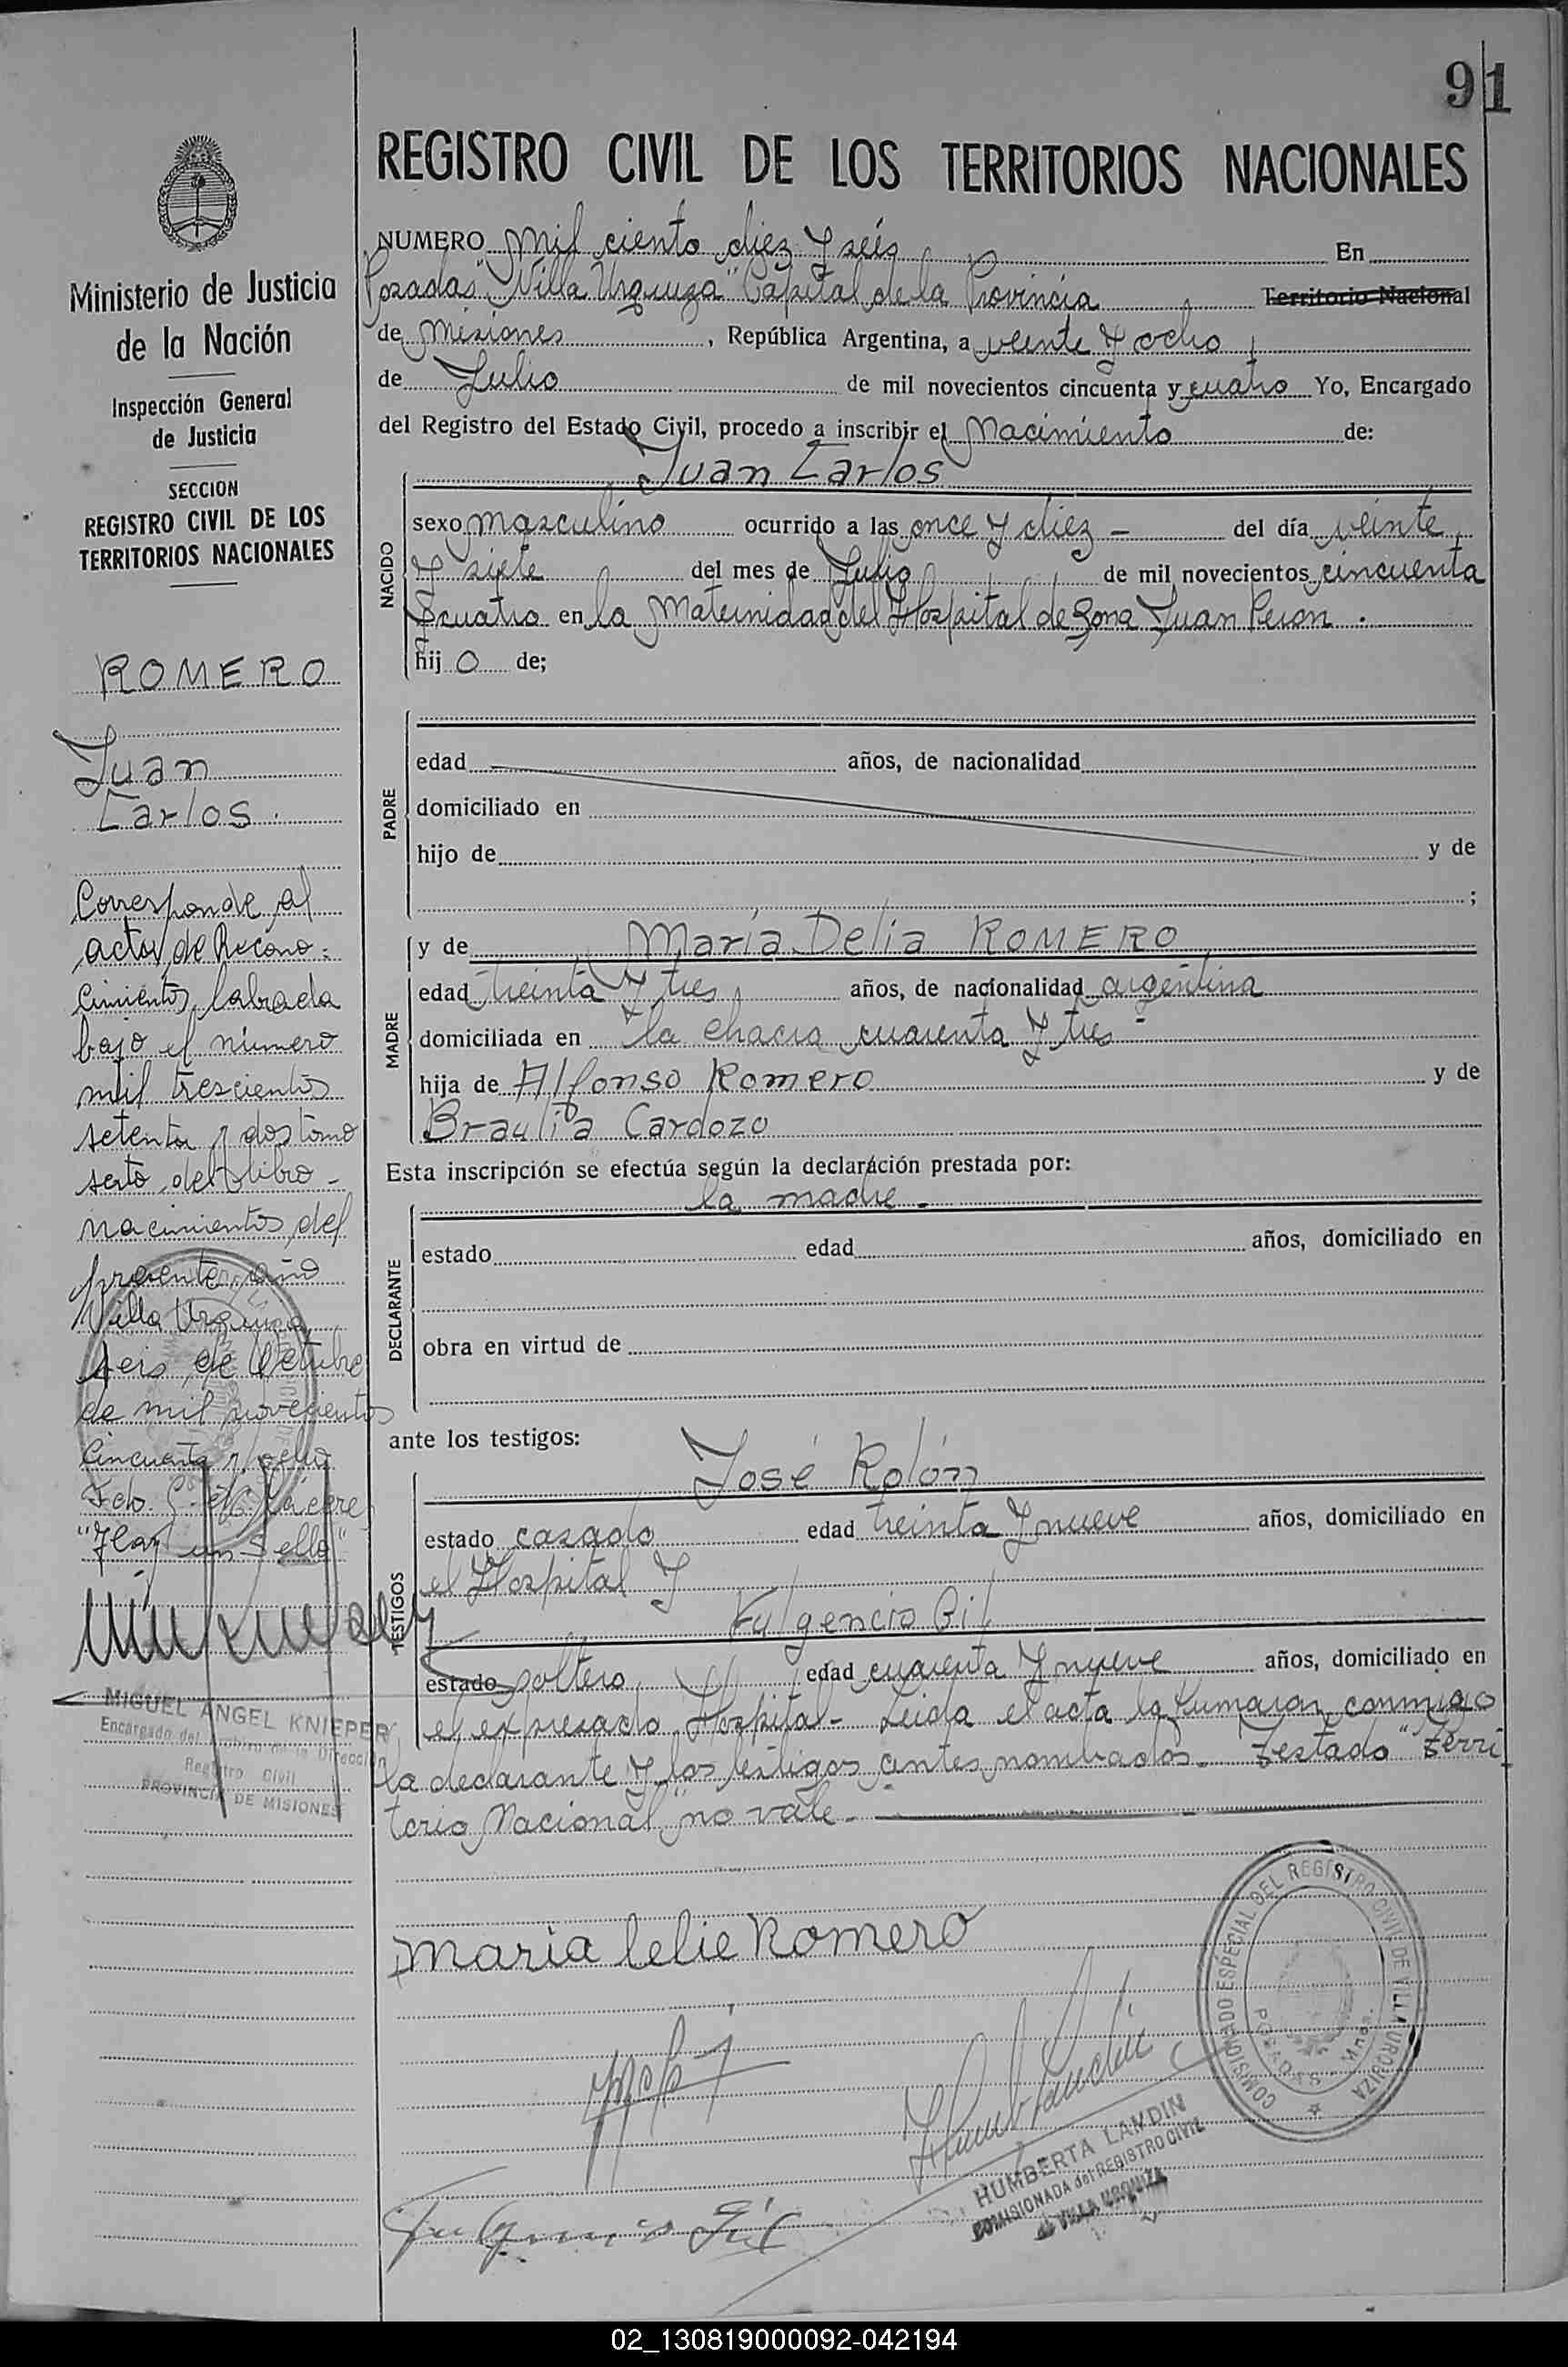 91
REGISTRO CIVIL DE LOS TERRITORIOS NACIONALES
Ministerio de Justicia
de la Nación
Inspección General
de Justicia
SECCION
REGISTRO CIVIL DE LOS
TERRITORIOS NACIONALES
ROMERO
Juan
Carlos.
Corresponde al
acta de Recono-
cimiento labrada
bajo el número
mil trescientos
setenta y dos tomo
sexto del libro
nacimientos del
presente año
Villa Urquiza,
seis de Octubre
de mil novecientos
cincuenta y ocho
Fdo.
"Hay un Sello"
MIGUEL ANGEL KNIEPER
Encargado del Archivo de la Dirección
Registro Civil
PROVINCIA DE MISIONES
NUMERO mil ciento diez y seis En
Posadas "Villa Urquiza" Capital de la Provincia Territorio Nacional
de Misiones, República Argentina, a veinte y ocho
de Julio de mil novecientos cincuenta y cuatro Yo, Encargado
del Registro del Estado Civil, procedo a inscribir el Nacimiento de:
Juan Carlos
NACIDO
sexo masculino ocurrido a las once y diez - del día veinte
y siete del mes de Julio de mil novecientos cincuenta
y cuatro en la Maternidad del Hospital de Zona Juan Peron.
hijo de;
PADRE
edad años, de nacionalidad
domiciliado en
hijo de y de
;
MADRE
y de María Delia ROMERO
edad treinta y tres años, de nacionalidad argentina
domiciliada en la chacra cuarenta y tres -
hija de Alfonso Romero y de
Braulia Cardozo
Esta inscripción se efectúa según la declaración prestada por:
la madre.
DECLARANTE
estado edad años, domiciliado en
obra en virtud de
ante los testigos:
TESTIGOS
José Rolón
estado casado edad treinta y nueve años, domiciliado en
el Hospital y
Fulgencio Gil
estado soltero edad cuarenta y nueve años, domiciliado en
el expresado Hospital - Leida el acta la firmaron conmigo
la declarante y los testigos antes nombrados. Testado "Terri
torio Nacional" no vale.
maria lelie Romero
Fulgencio Gil
HUMBERTA LANDIN
COMISIONADA del REGISTRO CIVIL
de VILLA URQUIZA
COMISIONADO ESPECIAL DEL REGISTRO CIVIL DE VILLA URQUIZA
POSADAS - Mnes.
02_130819000092-042194